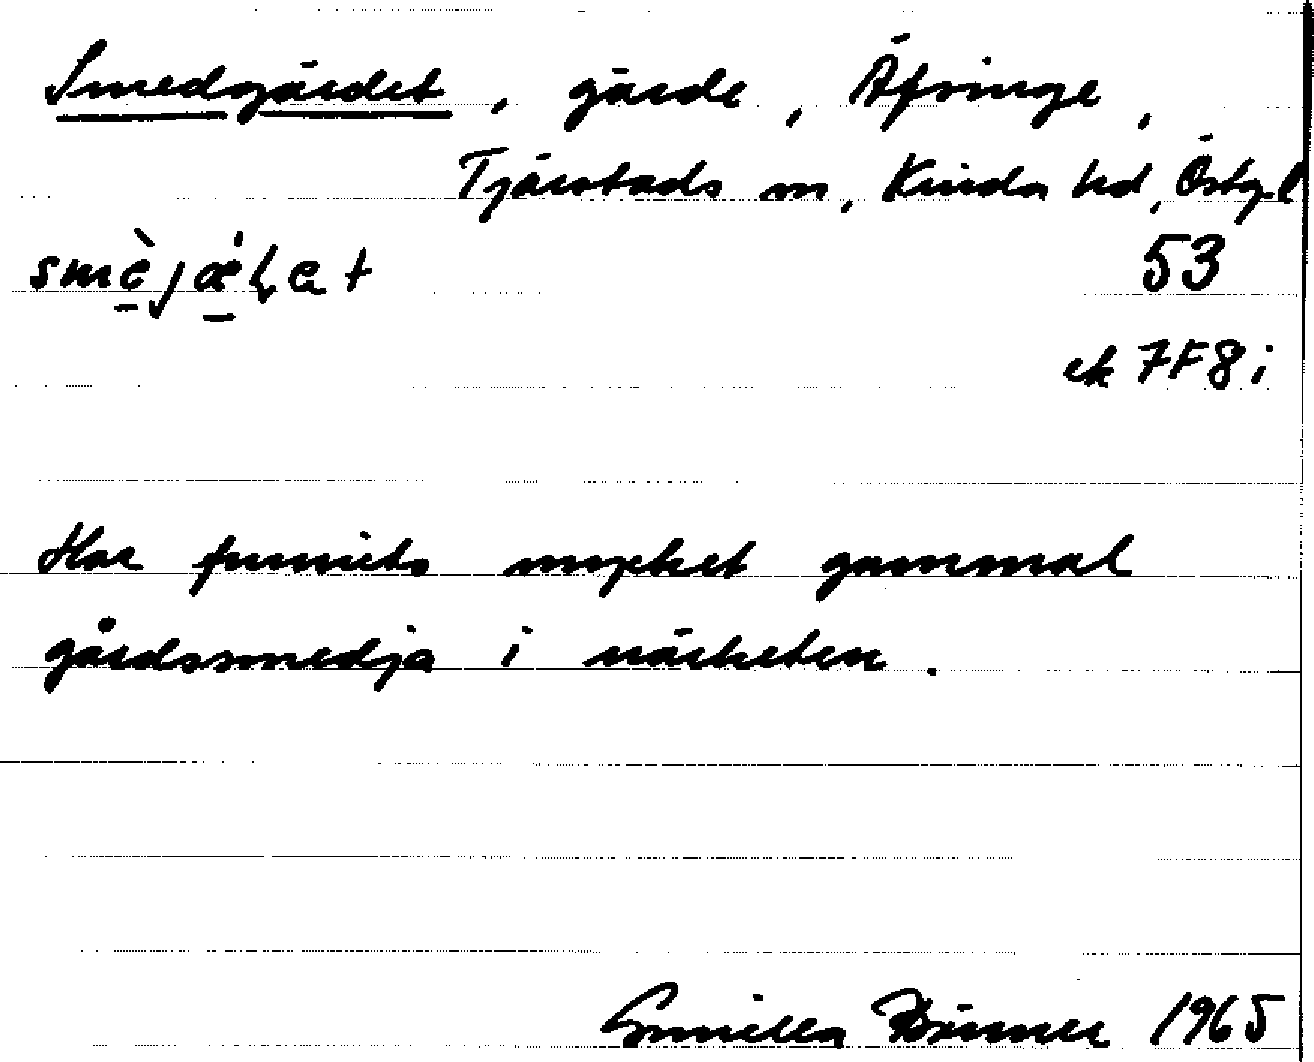 Smedgärdet, gärde, Äfringe,
Tjärstads sn, Kinda hd, Östgl
smèjæ̀ɽet
53
ek 7F8i
Har funnits mycket gammal
gårdssmedja i närheten.
Gunilla 1965